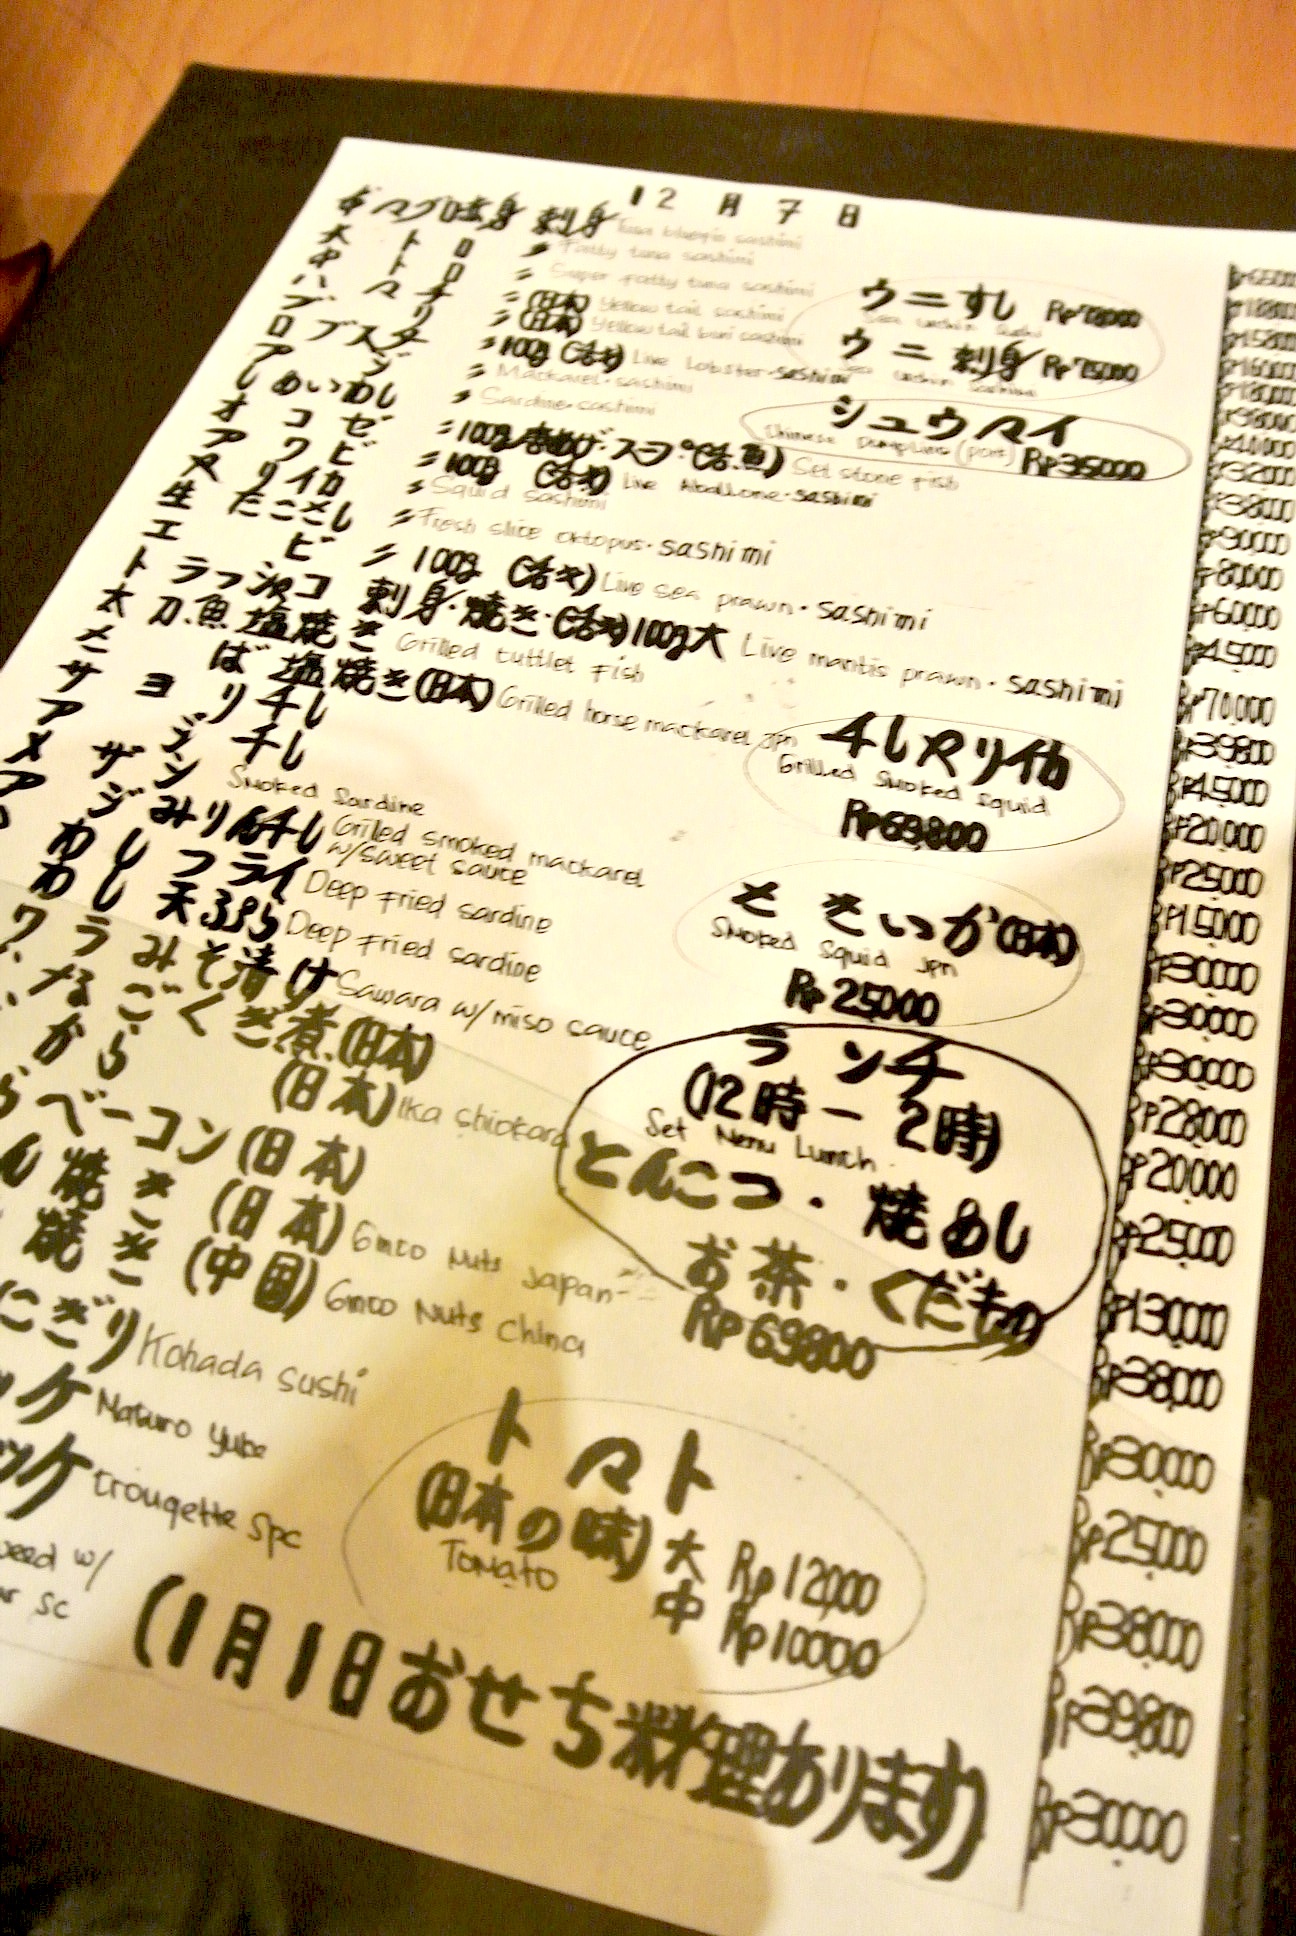 12月7日
刺身 Tuna bluefin sashimi
大トロ 〃 Fatty tuna sashimi
中トロ 〃 Super fatty tuna sashimi
ハマチ 〃 (日本) Yellow tail sashimi
ブリ 〃 (日本) Yellow tail buri sashimi
ロブスター 〃 100g (活き) Live Lobster・sashimi
アジ 〃 Mackarel・sashimi
しめいわし 〃 Sardine・sashimi
オコゼ 〃 100g スープ (活魚) Set stone fish
アワビ 〃 100g (活き) Live Aballone・sashimi
ヤリイカ 〃 Squid sashimi
生たこさし 〃 Fresh slice oktopus・sashimi
エビ 〃 100g (活き) Live sea prawn・sashimi
トラフシャコ 刺身・焼き・(活き) 100g大 Live mantis prawn・sashimi
太刀魚塩焼き Grilled cuttlet Fish
さば塩焼き(日本) Grilled horse mackarel Jpn
サヨリ干し
アジ干し
メザシ Smoked Sardine
アジみりん干し Grilled smoked mackarel w/sweet sauce
わしフライ Deep Fried sardine
わし天ぷら Deep Fried sardine
ワラみそ漬け Sawara w/ miso sauce
なごくぎ煮(日本)
から (日本) Ika shiokara
ベーコン(日本)
ん焼き (日本) Ginco Nuts Japan
焼き (中国) Ginco Nuts China
にぎり Kohada sushi
ッケ Naturo yube
ッケ Crouqette spc
weed w/
sc
ウニすし Rp78000
Sea urchin Sushi
ウニ刺身 Rp75000
Sea urchin Sashimi
シュウマイ
Chinese Dumpling (pork) Rp35000
干しヤリイカ
Grilled Smoked Squid
Rp69.800
さきいか(日本)
Smoked Squid Jpn
Rp 25.000
ランチ
(12時ー2時)
Set Menu Lunch
とんこつ・焼めし
お茶・くだもの
Rp 69.800
トマト
(日本の味) 大 Rp 12,000
Tomato 中 Rp 10.000
(1月1日おせち料理あります)
Rp90.000
Rp80,000
Rp60,000
Rp45,000
Rp70,000
Rp39,800
Rp45,000
Rp20,000
Rp25,000
Rp15,000
Rp30,000
Rp30,000
Rp30,000
Rp28,000
Rp20,000
Rp25,000
Rp130,000
Rp38,000
Rp30,000
Rp25,000
Rp38,000
Rp39,800
Rp30,000